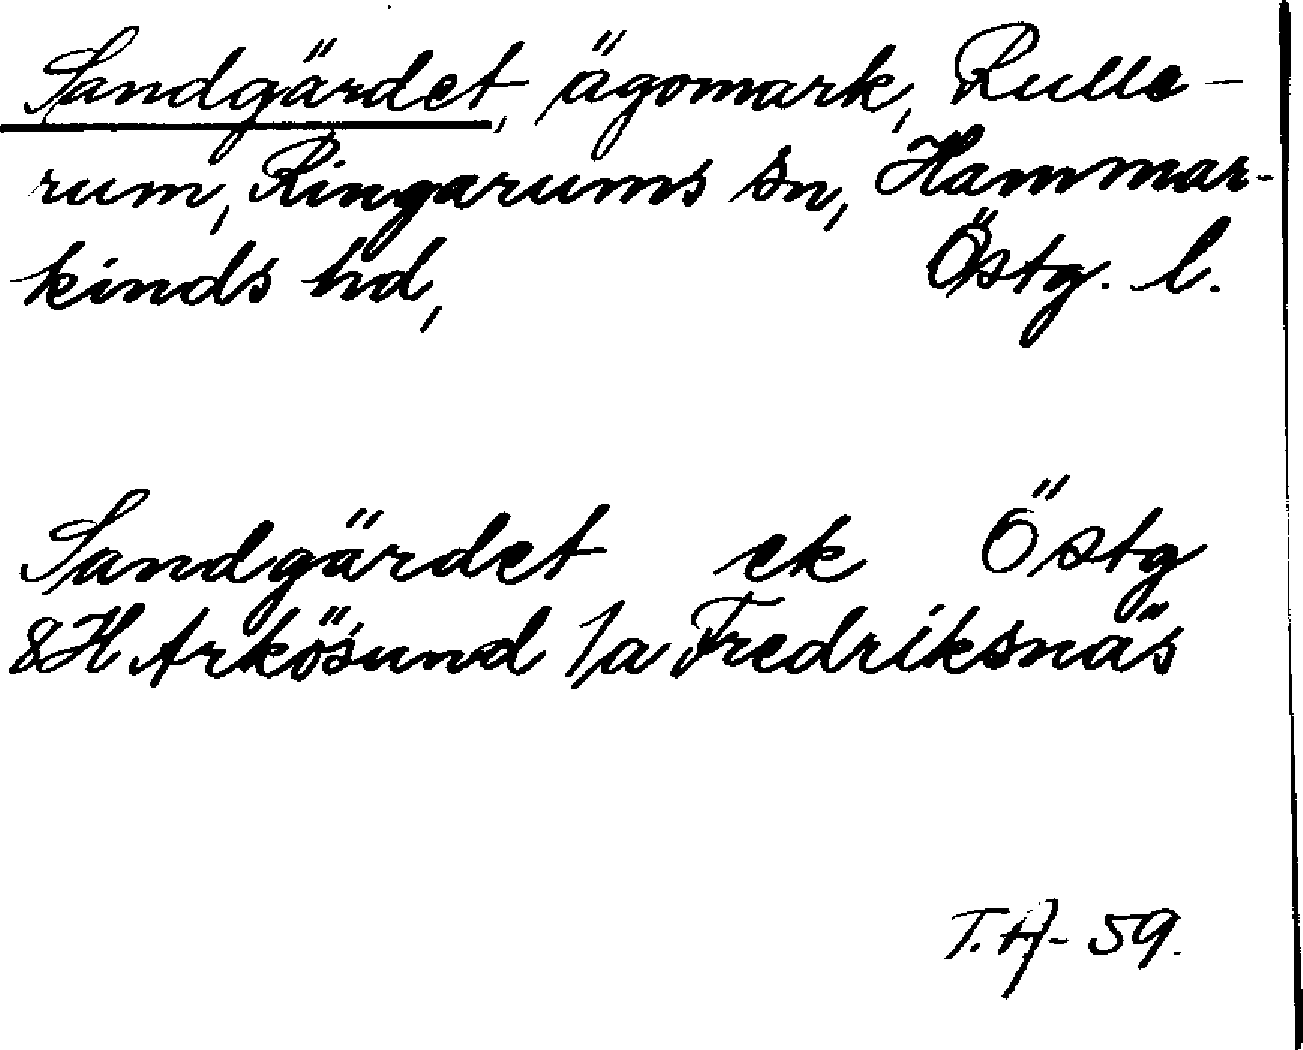 Sandgärdet, ägomark, Rulle-
rum, Ringarums sn, Hammar-
kinds hd, Östg. l.
Sandgärdet ek Östg
8H Arkösund 1/a Fredriksnäs
T.A- 59.